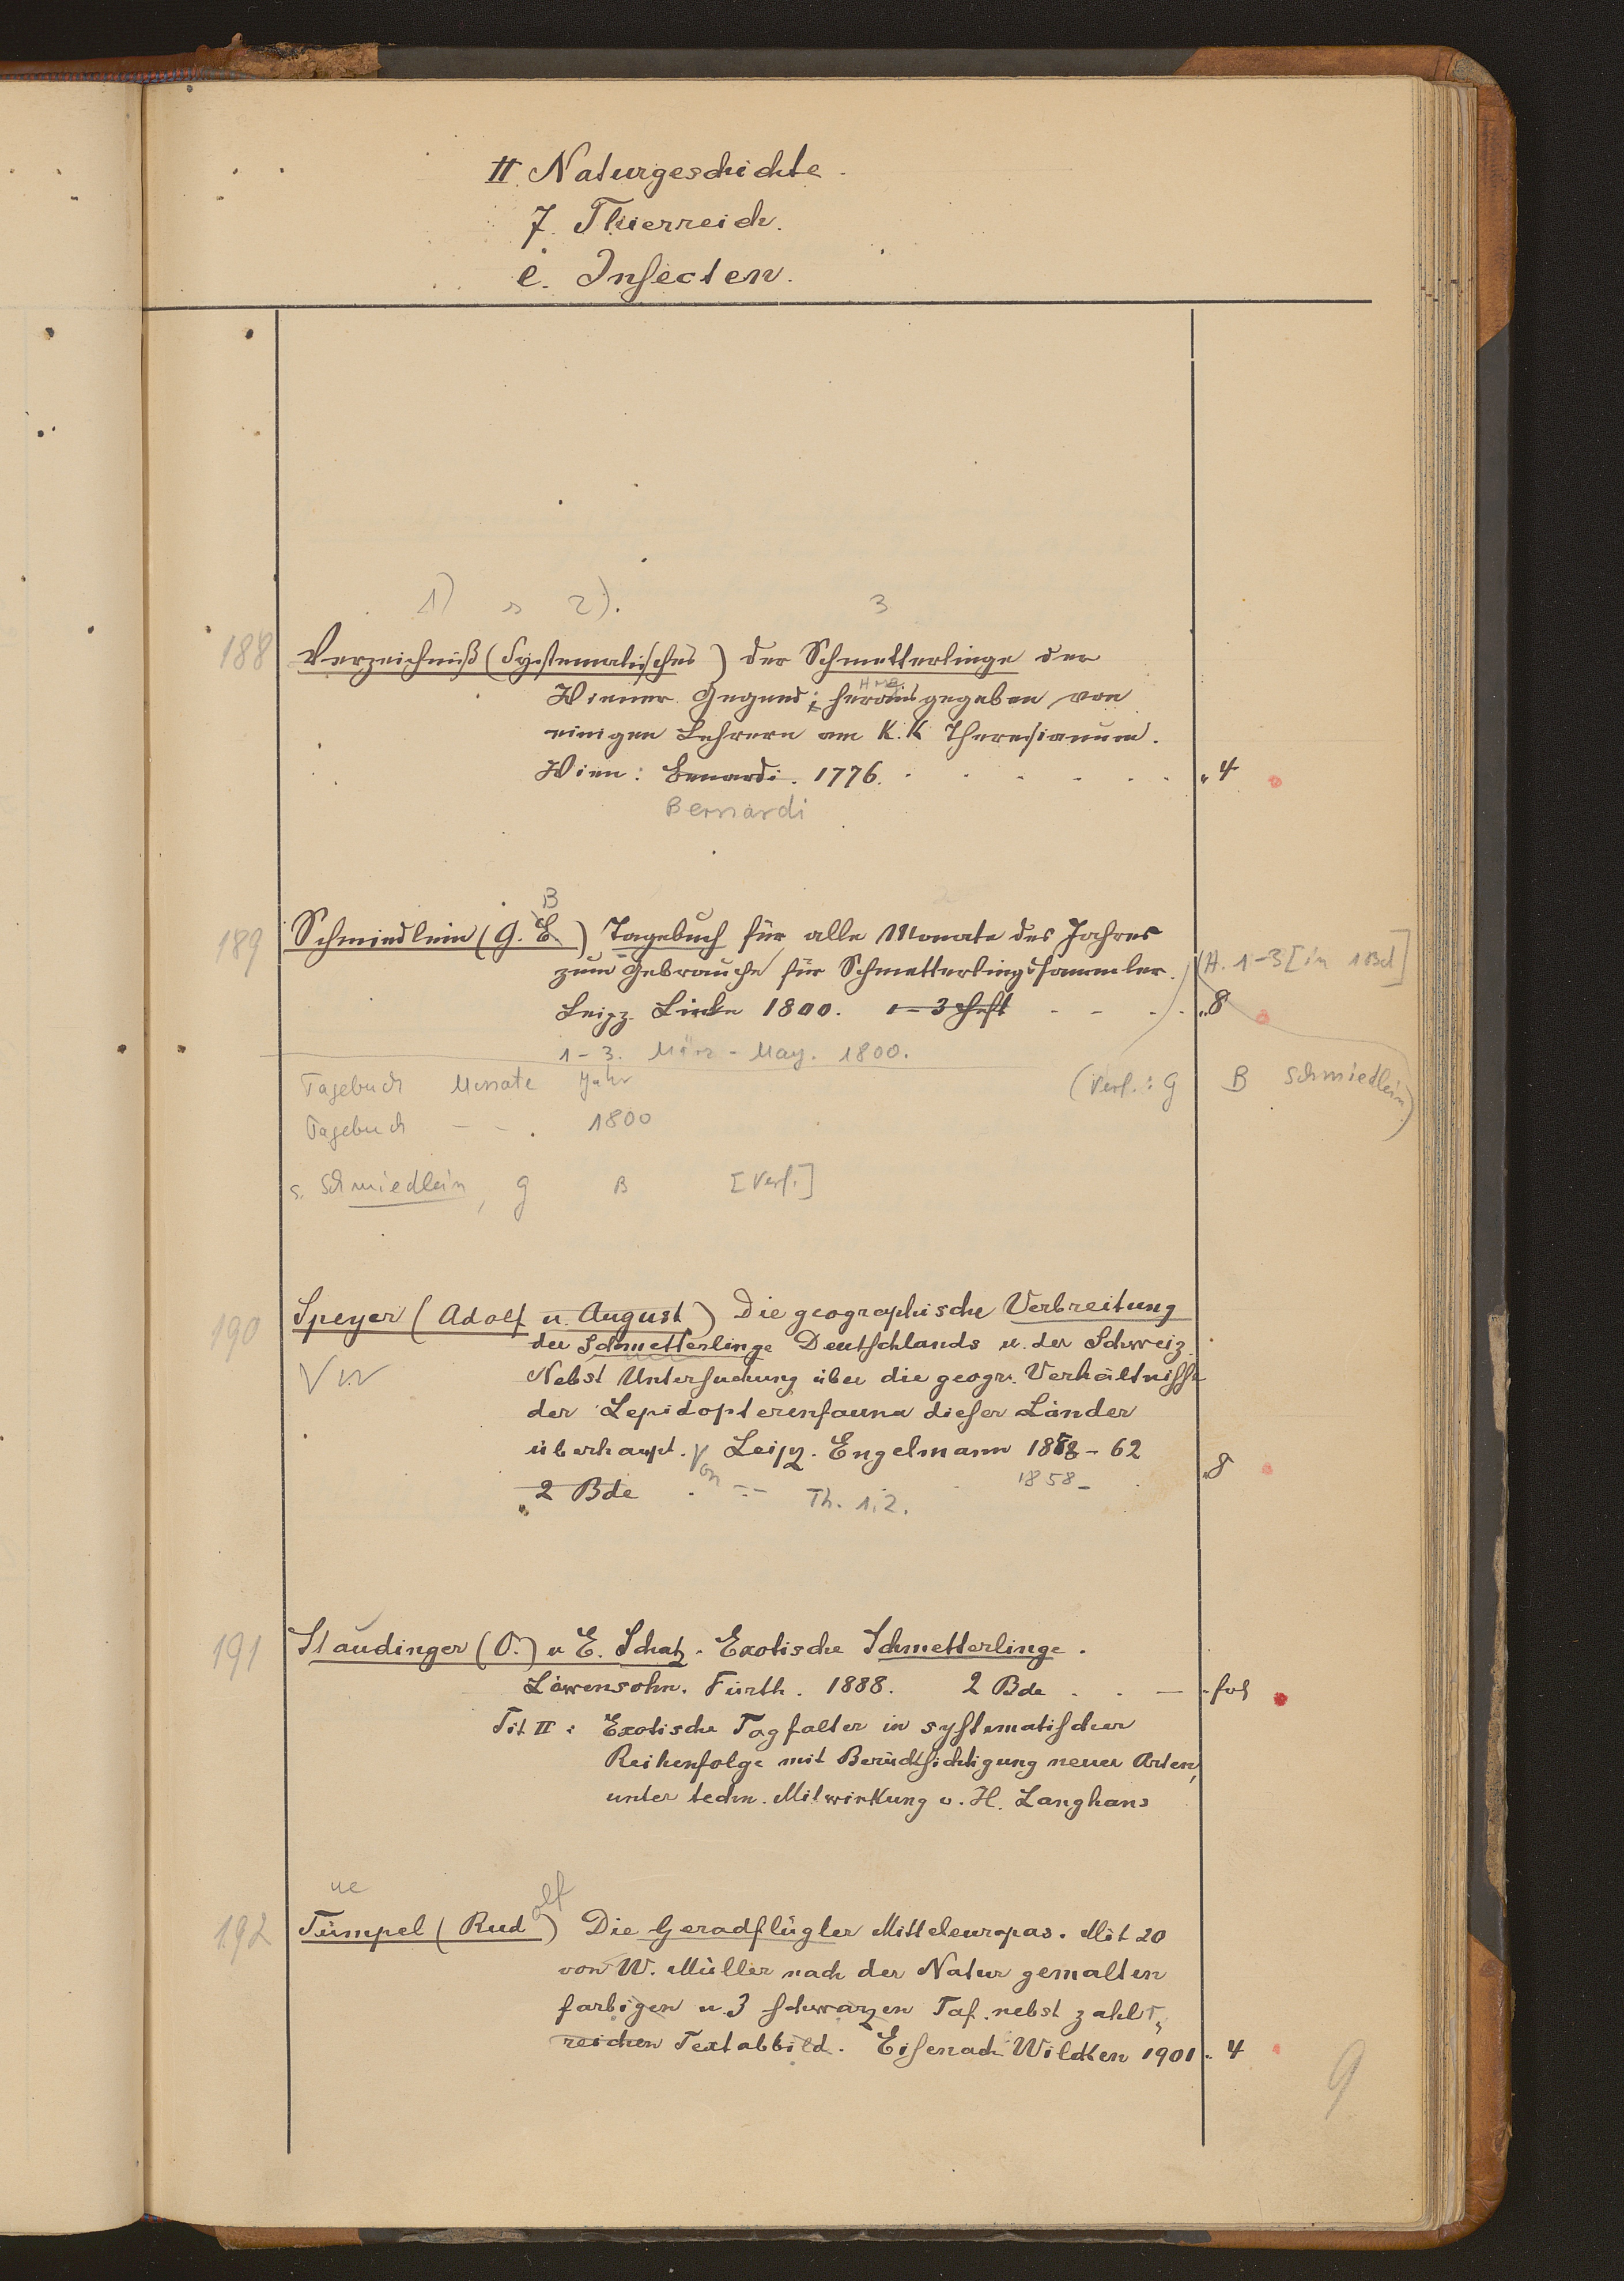 II. Naturgeschichte.
7. Thierreich.
e. Insecten.
1) s 2). 3
188 Verzeichniß (Systematisches) der Schmetterlinge der
Wiener Gegend; herausgegeben von
einigen Lehrern am K. K. Theresianum.
Wien: Benardi. 1776. „ 4
Bernardi
B
189 Schmiedlein (G. E.) Tagebuch für alle Monate des Jahres
zum Gebrauche für Schmetterlingssammler. (H. 1-3 [in 1 Bd]
Leipz. Linke 1800. 1-3 Heft „ 8
1-3. März - May. 1800.
Tagebuch Monate Jahr (Verf.: G B Schmiedlein)
Tagebuch - - . 1800
s. Schmiedlein, G B [Verf.]
190 Speyer (Adolf u. August) Die geographische Verbreitung
der Schmetterlinge Deutschlands u. der Schweiz.
Nebst Untersuchung über die geogr. Verhältnisse
der Lepidopterenfauna dieser Länder
überhaupt. Von Leipz. Engelmann 1858-62 „ 8
2 Bde -- Th. 1.2. 1858-
191 Staudinger (O.) u E. Schatz. Exotische Schmetterlinge.
Löwensohn. Fürth. 1888. 2 Bde - fol
Tit II: Exotische Tagfalter in systematischer
Reihenfolge mit Berücksichtigung neuer Arten,
unter techn. Mitwirkung v. H. Langhans
ue olf
192 Tümpel (Rud) Die Geradflügler Mitteleuropas. Mit 20
von W. Müller nach der Natur gemalten
farbigen u. 3 schwarzen Taf. nebst zahl
reichen Textabbild. Eisenach Wilckens 1901. 4
9